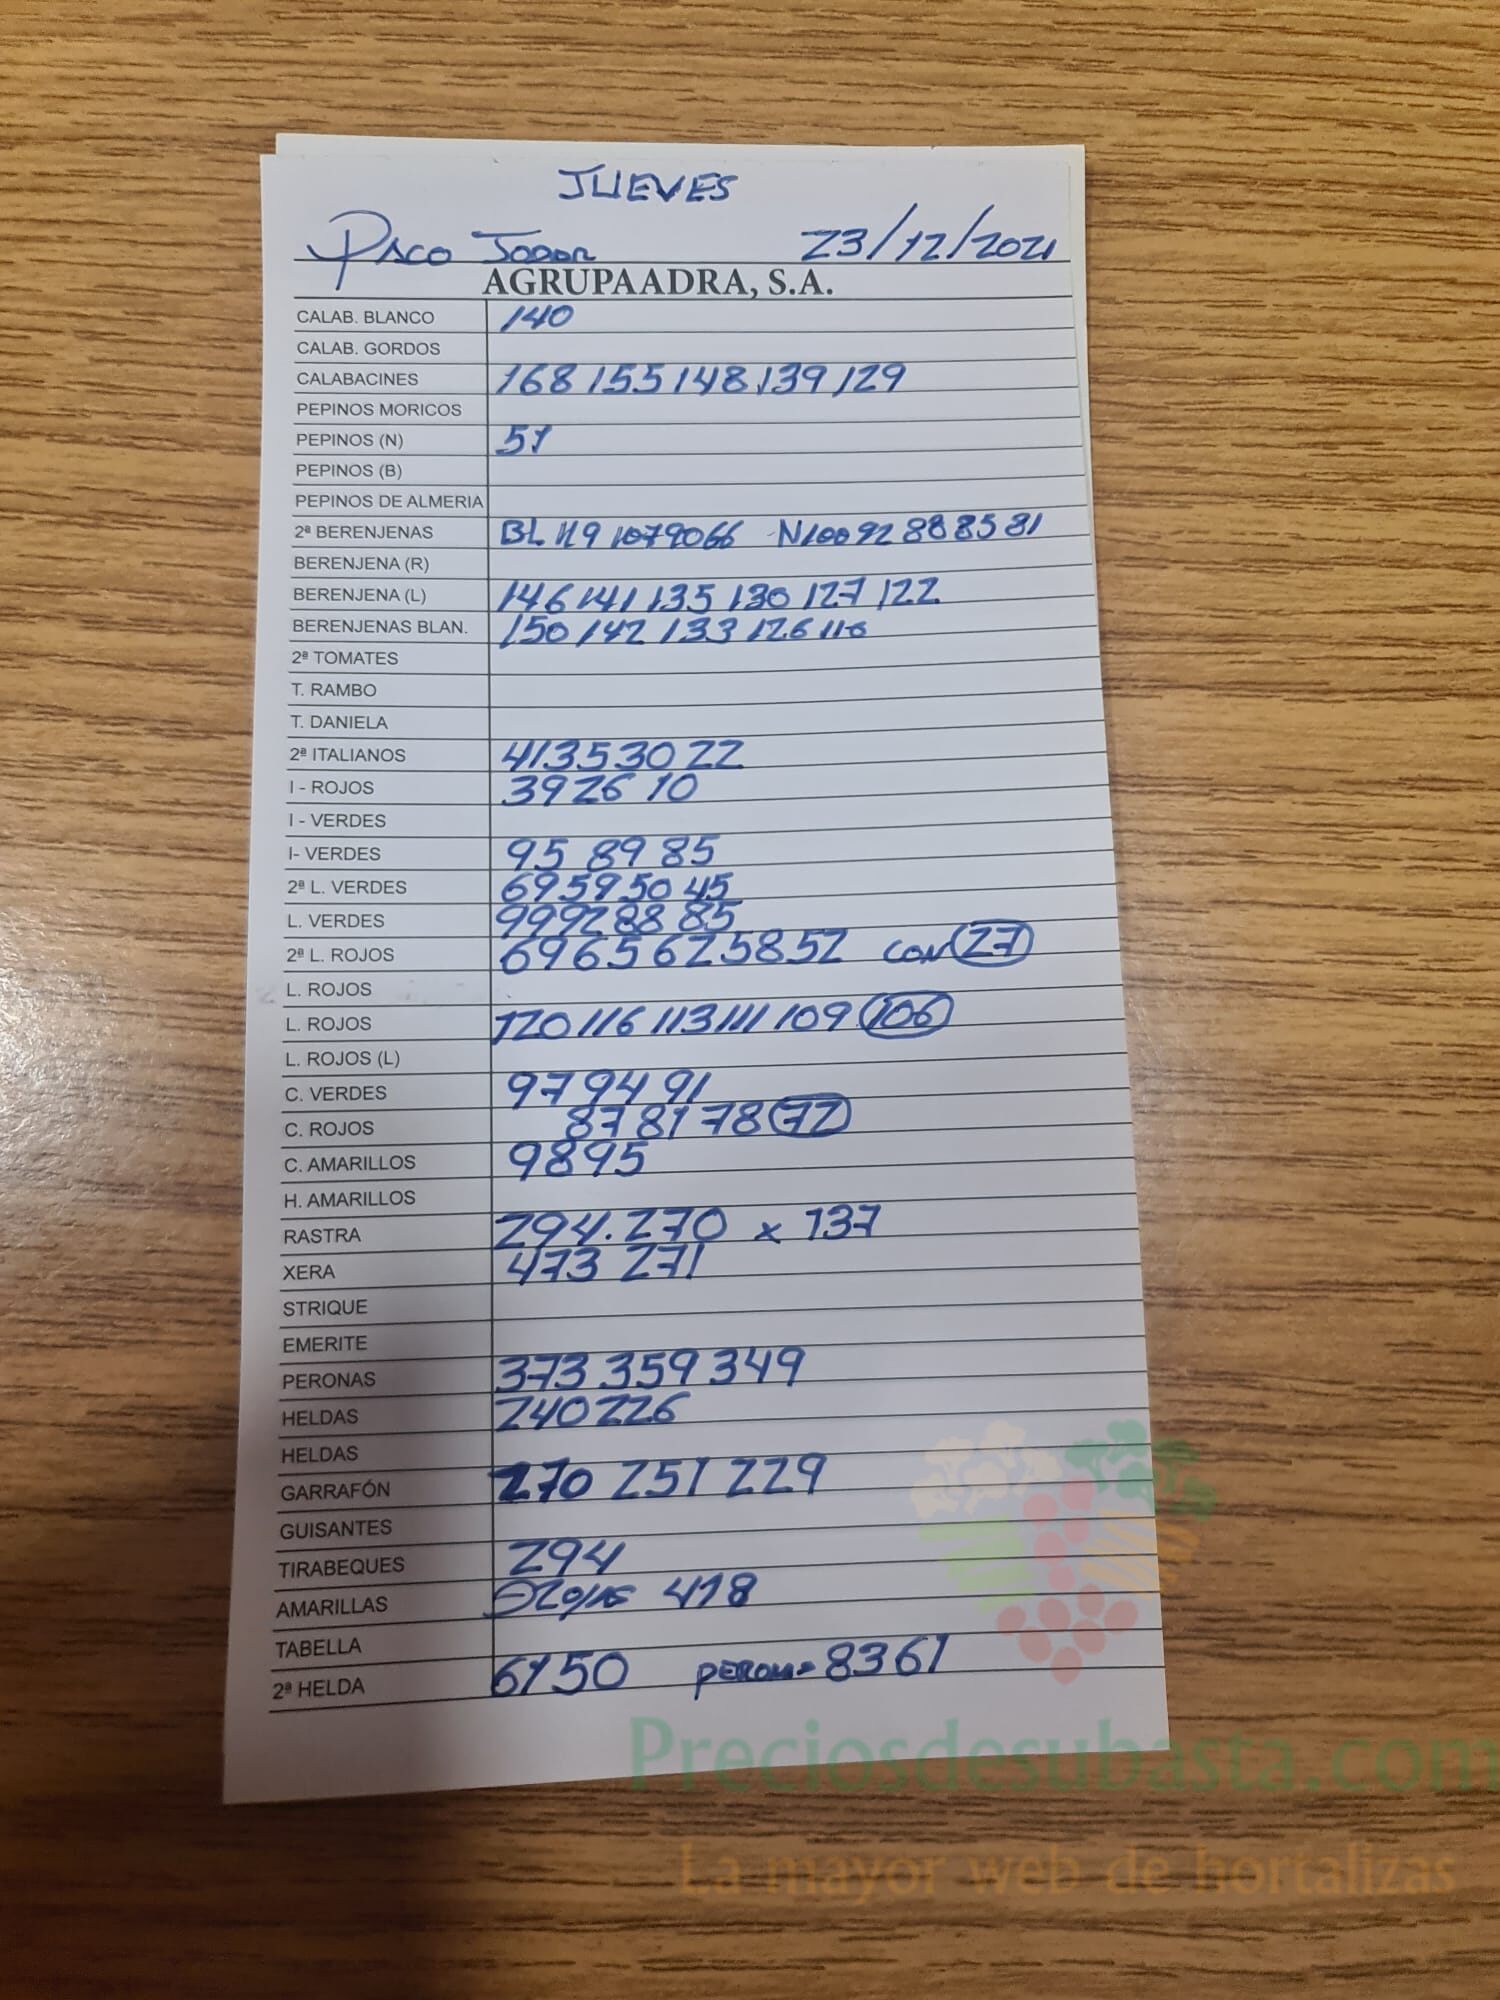 JUEVES
PACO JODAR 23/12/2021
AGRUPAADRA, S.A.
CALAB. BLANCO 140
CALAB. GORDOS
CALABACINES 168 155 148 139 129
PEPINOS MORICOS
PEPINOS (N) 51
PEPINOS (B)
PEPINOS DE ALMERIA
2ª BERENJENAS BL 119 107 90 66 N 100 92 88 85 81
BERENJENA (R)
BERENJENA (L) 146 141 135 130 127 122
BERENJENAS BLAN. 150 142 133 126 116
2ª TOMATES
T. RAMBO
T. DANIELA
2ª ITALIANOS 41 35 30 22
I - ROJOS 39 26 10
I - VERDES
I- VERDES 95 89 85
2ª L. VERDES 69 59 50 45
L. VERDES 99 92 88 85
2ª L. ROJOS 69 65 62 58 52 CON 27
L. ROJOS
L. ROJOS 120 116 113 111 109 106
L. ROJOS (L)
C. VERDES 97 94 91
C. ROJOS 87 81 78 72
C. AMARILLOS 98 95
H. AMARILLOS
RASTRA 294. 270 x 137
XERA 473 271
STRIQUE
EMERITE
PERONAS 373 359 349
HELDAS 240 226
HELDAS
GARRAFÓN 270 251 229
GUISANTES
TIRABEQUES 294
AMARILLAS 418
TABELLA
2ª HELDA 61 50 PERONA 83 61
Preciosdesubasta.com
La mayor web de hortalizas